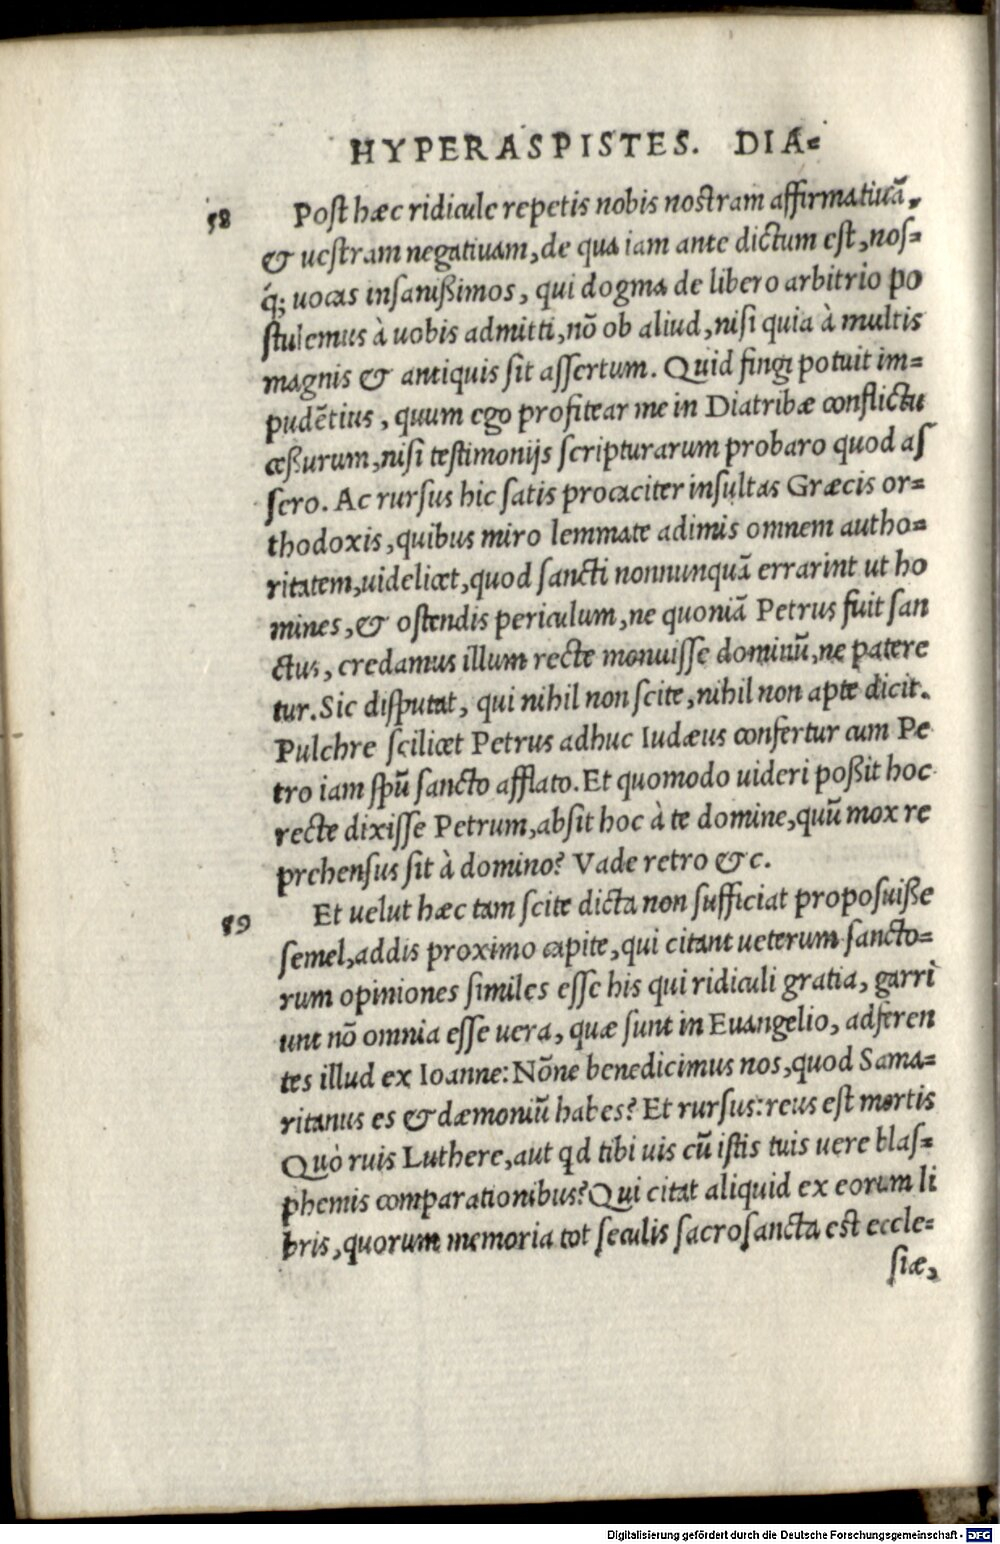 HYPERASPISTES. DIA=
58 Post hæc ridicule repetis nobis nostram affirmatiuã,
& uestram negatiuam, de qua iam ante dictum est, nos=
q́; uocas insanißimos, qui dogma de libero arbitrio po
stulemus à uobis admitti, nõ ob aliud, nisi quia à multis
magnis & antiquis sit assertum. Quid fingi potuit im=
pudẽtius, quum ego profitear me in Diatribæ conflictu
ceßurum, nisi testimonijs scripturarum probaro quod as
sero. Ac rursus hic satis procaciter insultas Græcis or=
thodoxis, quibus miro lemmate adimis omnem autho=
ritatem, uidelicet, quod sancti nonnunquã errarint ut ho
mines, & ostendis periculum, ne quoniã Petrus fuit san
ctus, credamus illum recte monuisse dominũ, ne patere
tur. Sic disputat, qui nihil non scite, nihil non apte dicit.
Pulchre scilicet Petrus adhuc Iudæus confertur cum Pe
tro iam spũ sancto afflato. Et quomodo uideri poßit hoc
recte dixisse Petrum, absit hoc à te domine, quũ mox re
prehensus sit à domino? Vade retro &c.
59 Et uelut hæc tam scite dicta non sufficiat proposuiße
semel, addis proximo capite, qui citant ueterum sancto=
rum opiniones similes esse his qui ridiculi gratia, garri
unt nõ omnia esse uera, quæ sunt in Euangelio, adferen
tes illud ex Ioanne: Nõne benedicimus nos, quod Sama=
ritanus es & dæmoniũ habes? Et rursus: reus est mortis
Quò ruis Luthere, aut qd tibi uis cũ istis tuis uere blas=
phemis comparationibus? Qui citat aliquid ex eorum li
bris, quorum memoria tot seculis sacrosancta est eccle=
siæ,
Digitalisierung gefördert durch die Deutsche Forschungsgemeinschaft - DFG